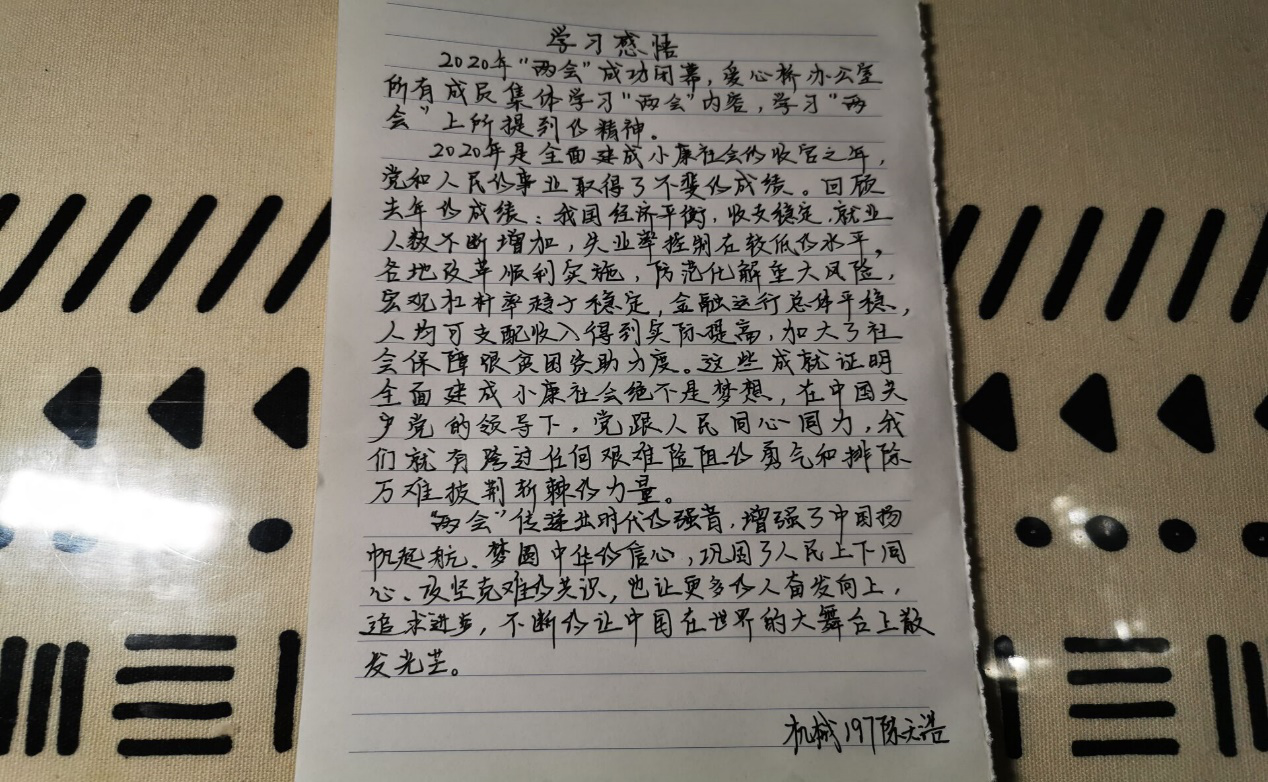 学习感悟
2020年“两会”成功闭幕，爱心桥办公室
所有成员集体学习“两会”内容，学习“两
会”上所提到的精神。
2020年是全面建成小康社会的收官之年，
党和人民的事业取得了不斐的成绩。回顾
去年的成绩：我国经济平衡，收支稳定，就业
人数不断增加，失业率控制在较低的水平，
各地改革顺利实施，防范化解重大风险，
宏观杠杆率趋于稳定，金融运行总体平稳，
人均可支配收入得到实际提高，加大了社
会保障跟贫困资助力度。这些成就证明
全面建成小康社会绝不是梦想，在中国共
产党的领导下，党跟人民同心同力，我
们就有跨过任何艰难险阻的勇气和排除
万难披荆斩棘的力量。
“两会”传递出时代的强音，增强了中国扬
帆起航、梦圆中华的信心，巩固了人民上下同
心、攻坚克难的共识，也让更多的人奋发向上，
追求进步，不断的让中国在世界的大舞台上散
发光芒。
机械197陈天浩